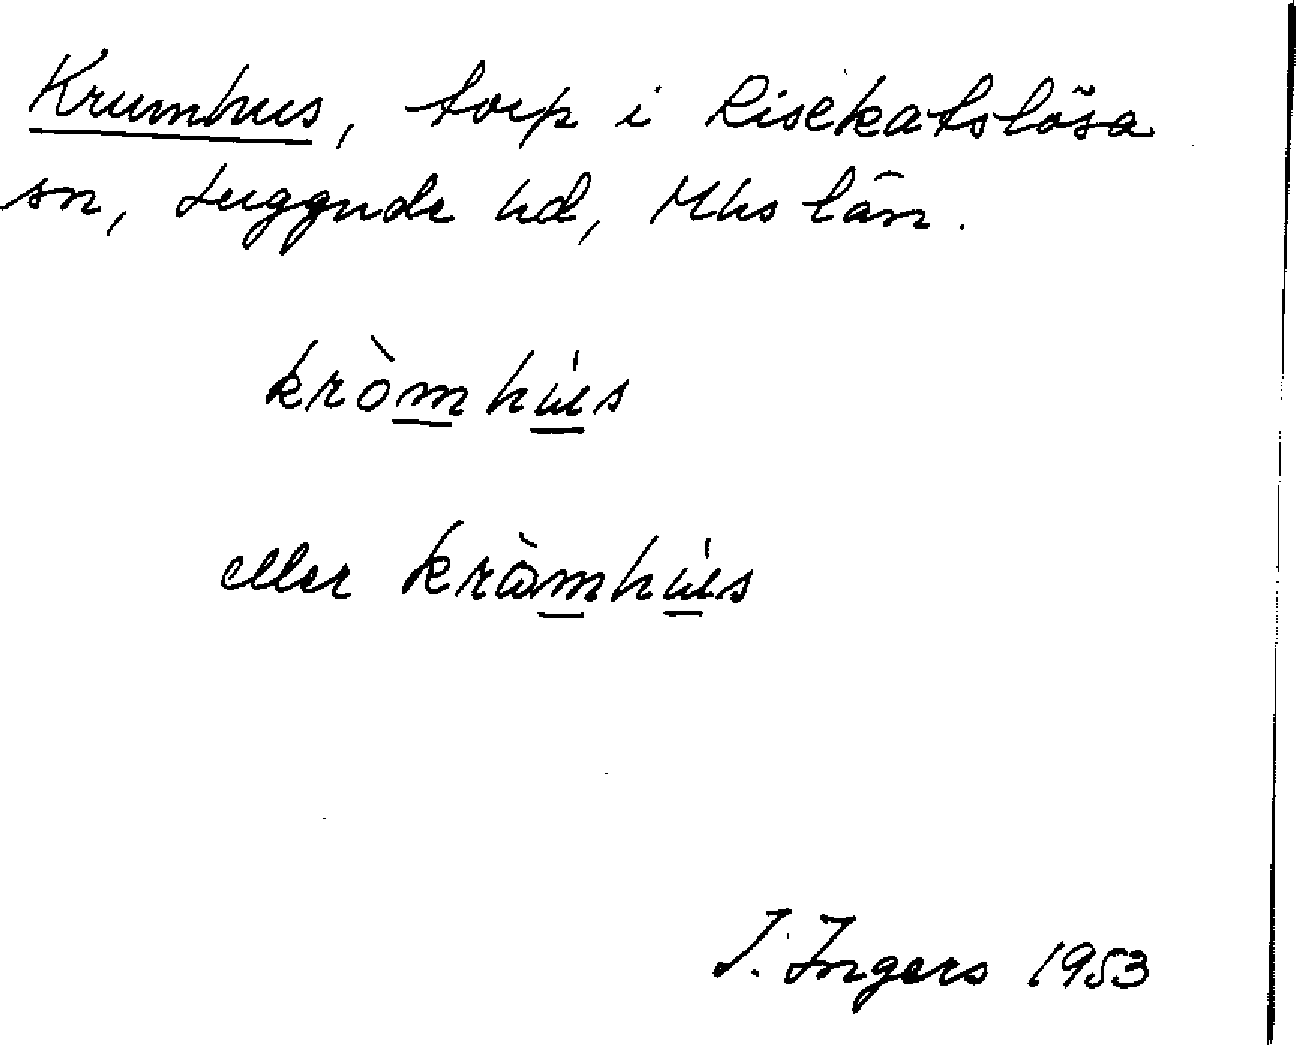 Krumhus, torp i Risekatslösa
sn, Luggude hd, Mhs län.
kròmhús
eller kròmhús
I. Ingers 1953